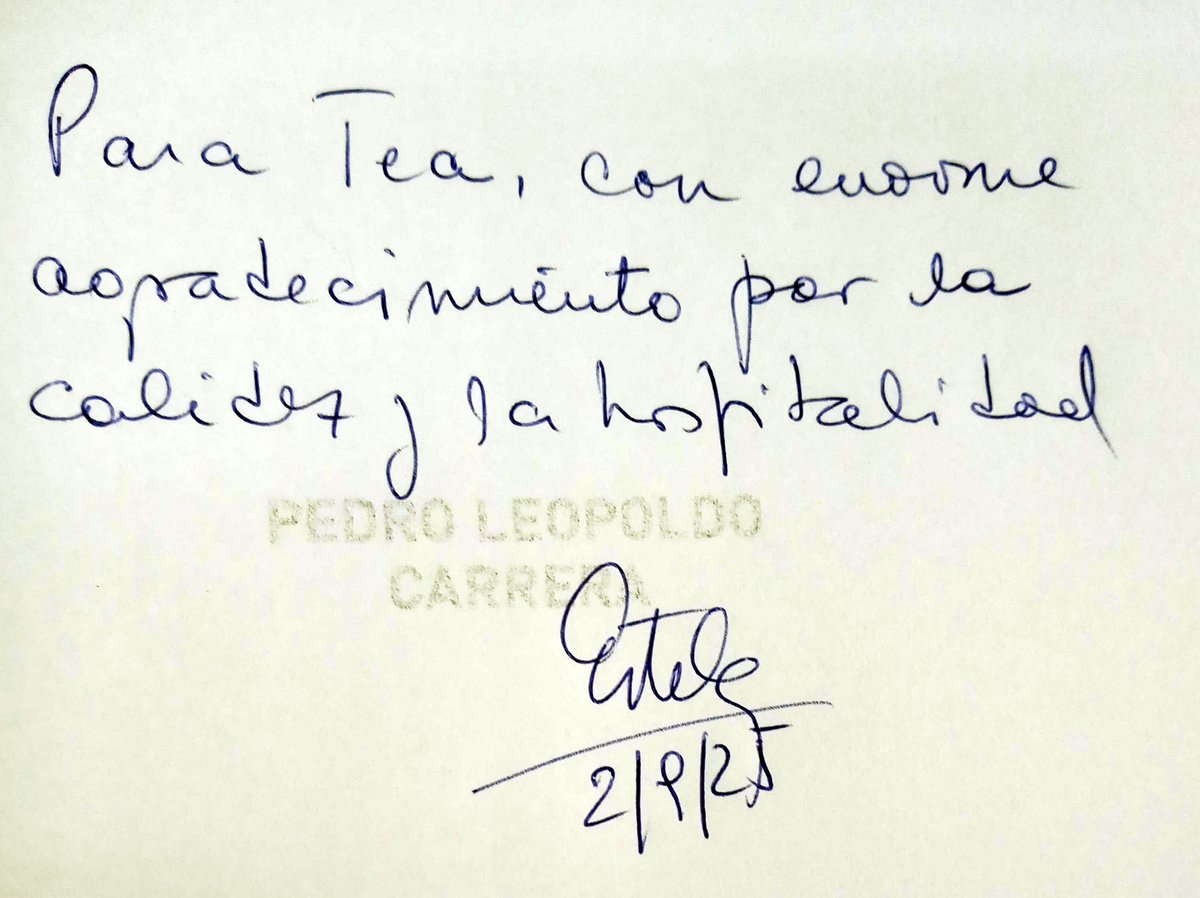 Para Tea, con enorme
agradecimiento por la
calidez y la hospitalidad
PEDRO LEOPOLDO
CARRERA
Estela
2/9/25